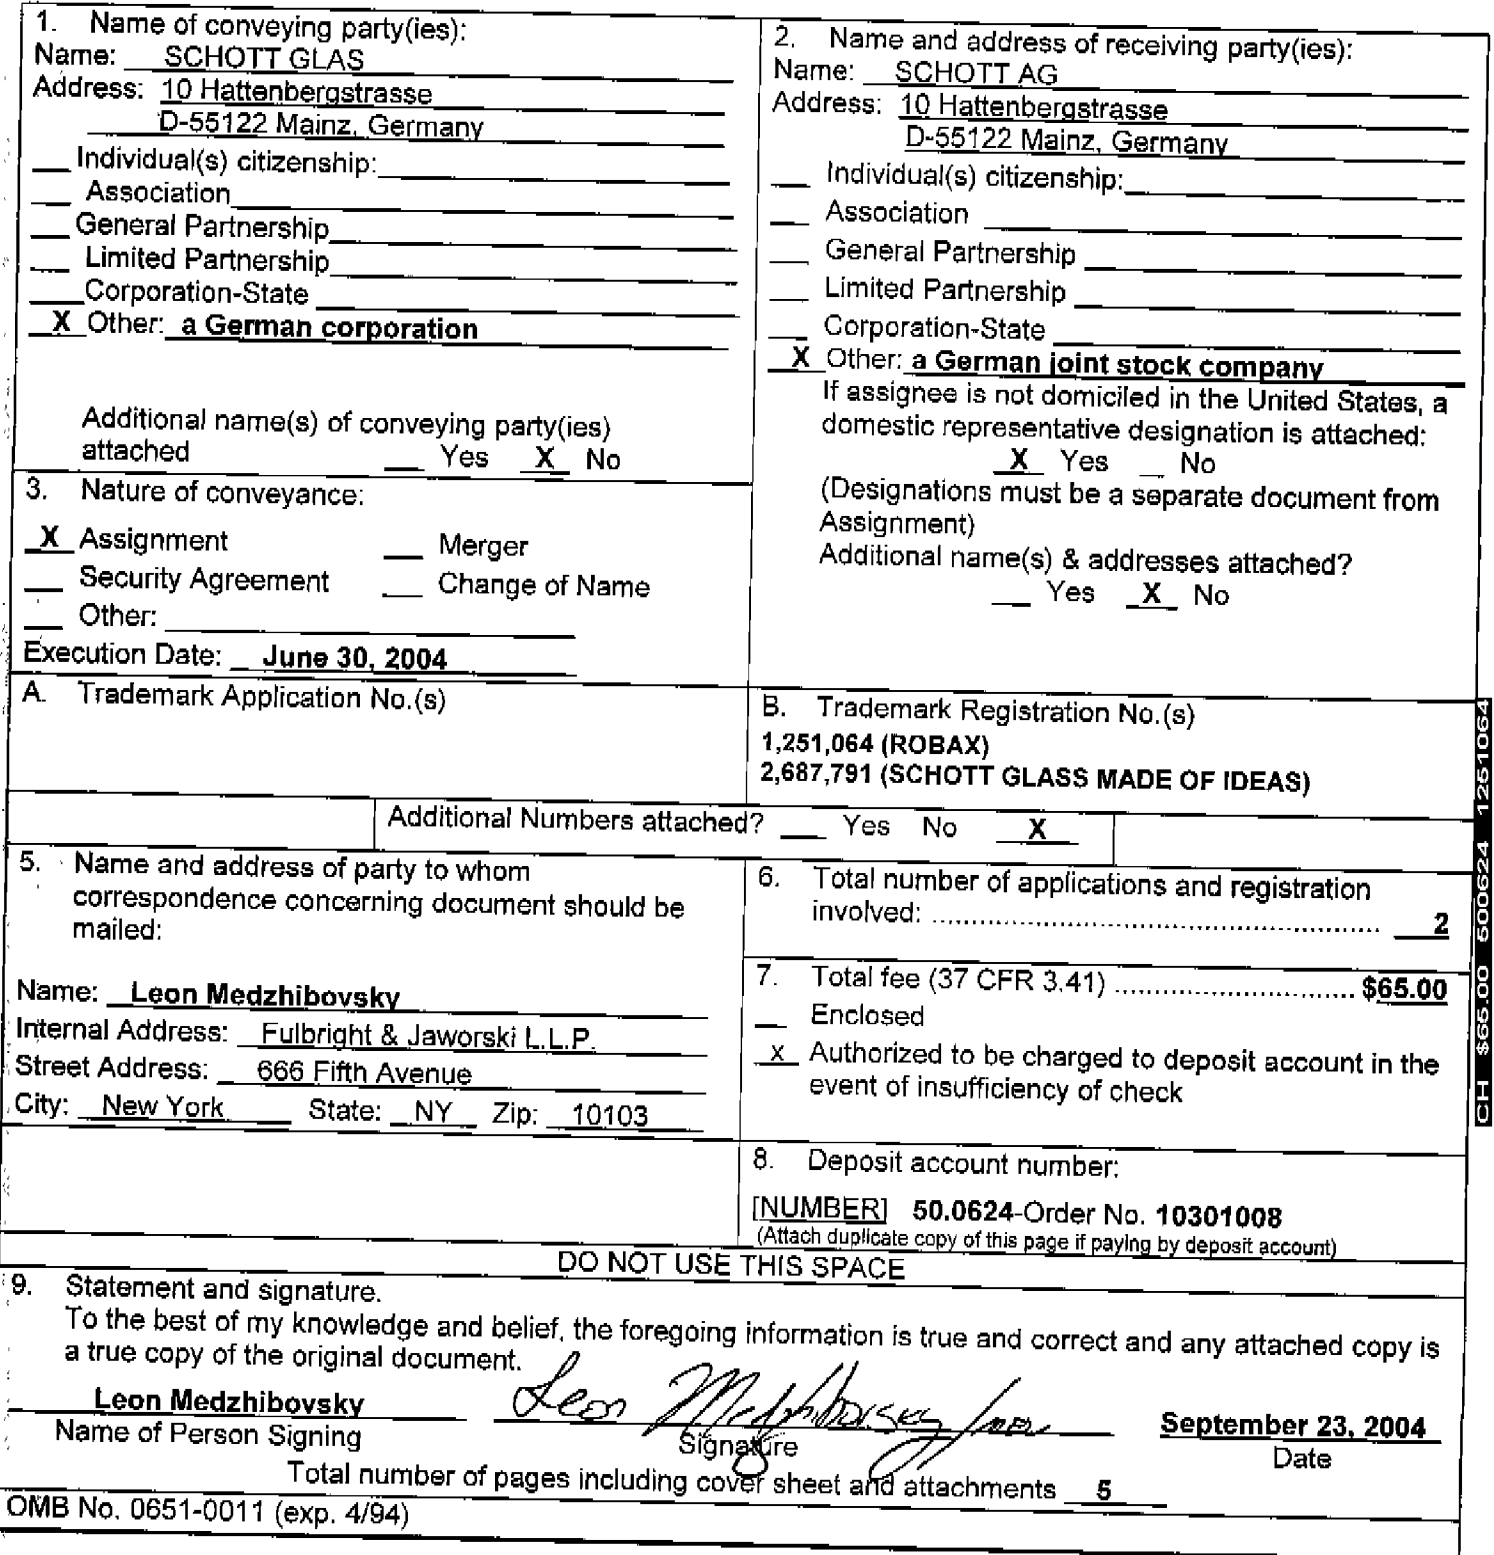 1. Name of conveying party(ies):
Name: SCHOTT GLAS
Address: 10 Hattenbergstrasse
D-55122 Mainz, Germany
__ Individual(s) citizenship:
__ Association
__ General Partnership
__ Limited Partnership
__ Corporation-State
X Other: a German corporation
Additional name(s) of conveying party(ies)
attached __ Yes X No
2. Name and address of receiving party(ies):
Name: SCHOTT AG
Address: 10 Hattenbergstrasse
D-55122 Mainz, Germany
__ Individual(s) citizenship:
__ Association
__ General Partnership
__ Limited Partnership
__ Corporation-State
X Other: a German joint stock company
If assignee is not domiciled in the United States, a
domestic representative designation is attached:
X Yes __ No
(Designations must be a separate document from
Assignment)
Additional name(s) & addresses attached?
__ Yes X No
3. Nature of conveyance:
X Assignment __ Merger
__ Security Agreement __ Change of Name
__ Other:
Execution Date: June 30, 2004
A. Trademark Application No.(s)
B. Trademark Registration No.(s)
1,251,064 (ROBAX)
2,687,791 (SCHOTT GLASS MADE OF IDEAS)
Additional Numbers attached? __ Yes No X
5. Name and address of party to whom
correspondence concerning document should be
mailed:
Name: Leon Medzhibovsky
Internal Address: Fulbright & Jaworski L.L.P.
Street Address: 666 Fifth Avenue
City: New York State: NY Zip: 10103
6. Total number of applications and registration
involved: ........................................ 2
7. Total fee (37 CFR 3.41) ........................ $65.00
__ Enclosed
x Authorized to be charged to deposit account in the
event of insufficiency of check
8. Deposit account number:
[NUMBER] 50.0624-Order No. 10301008
(Attach duplicate copy of this page if paying by deposit account)
DO NOT USE THIS SPACE
9. Statement and signature.
To the best of my knowledge and belief, the foregoing information is true and correct and any attached copy is
a true copy of the original document.
Leon Medzhibovsky Leon Medzhibovsky September 23, 2004
Name of Person Signing Signature Date
Total number of pages including cover sheet and attachments 5
OMB No. 0651-0011 (exp. 4/94)
CH $65.00 500624 1251064